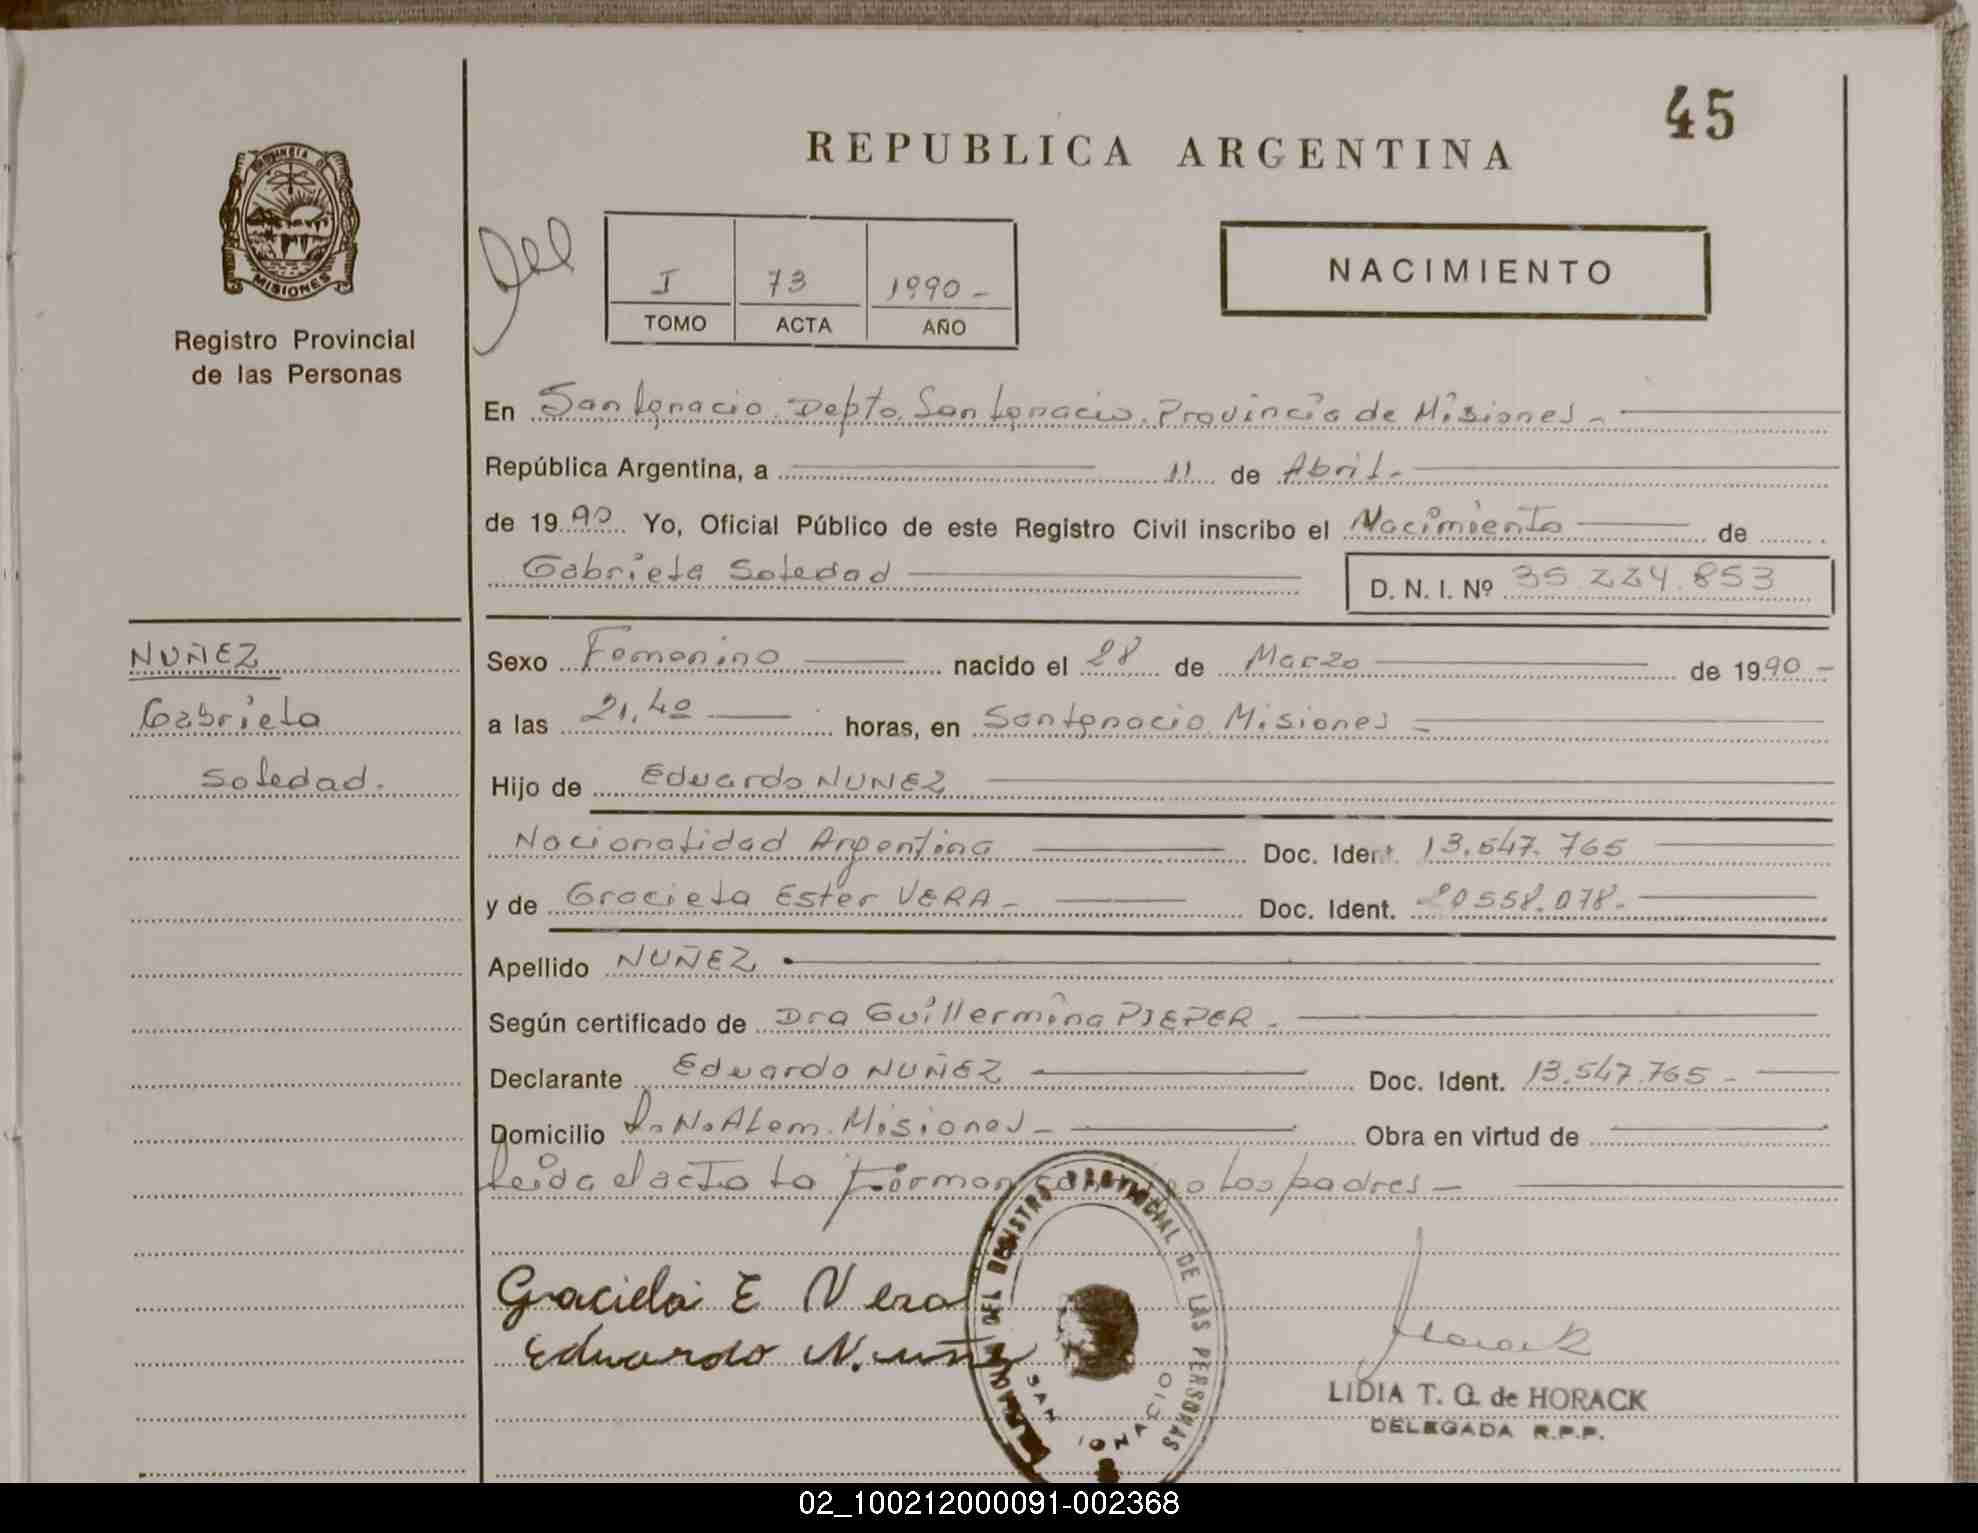 45
REPUBLICA ARGENTINA
PROVINCIA DE
MISIONES
Registro Provincial
de las Personas
I 73 1990 -
TOMO ACTA AÑO
NACIMIENTO
En San Ignacio. Depto. San Ignacio. Provincia de Misiones -
República Argentina, a 11 de Abril -
de 1990 Yo, Oficial Público de este Registro Civil inscribo el Nacimiento de
Gabriela Soledad D. N. I. Nº 35 224.853
NUÑEZ
Gabriela
Soledad.
Sexo Femenino nacido el 28 de Marzo de 1990 -
a las 21,40 horas, en San Ignacio Misiones -
Hijo de Eduardo NUÑEZ
Nacionalidad Argentina Doc. Ident. 13.547.765
y de Graciela Ester VERA - Doc. Ident. 20558.078 -
Apellido NUÑEZ
Según certificado de Dra Guillermina PIEPER -
Declarante Eduardo NUÑEZ Doc. Ident. 13.547.765 -
Domicilio L. N. Alem. Misiones - Obra en virtud de
Leida el acta la firman los padres -
Graciela E Vera
Eduardo Nuñez
DEL REGISTRO PROVINCIAL DE LAS PERSONAS
SAN IGNACIO
LIDIA T. G. de HORACK
DELEGADA R.P.P.
02_100212000091-002368